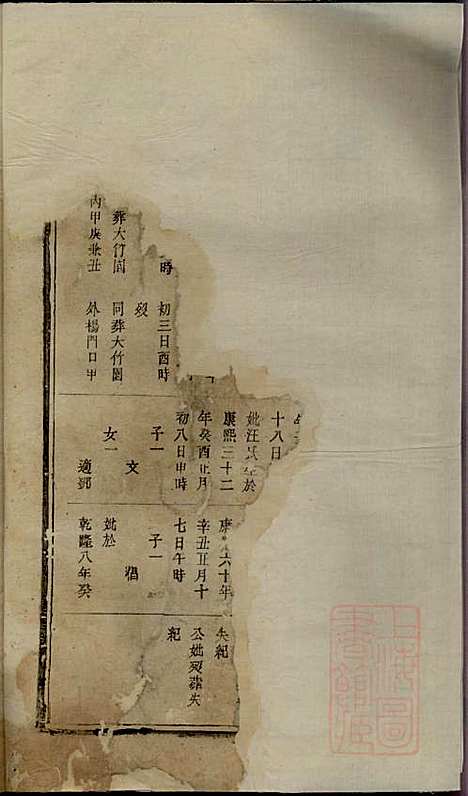 時
初三日酉時
歿
葬大竹園
同葬大竹園
丙甲庚兼丑
外楊門口甲
十八日
妣汪氏年於
康熙三十二
年癸酉正月
初八日申時
子一
文
女一
適鄧
六十年
辛丑正月十
七日午時
子一
焻
妣於
乾隆八年癸
失紀
公妣歿葬失
紀
上海圖書館藏